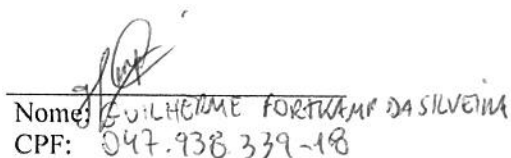 Nome: GUILHERME FORTKAMP DA SILVEIRA
CPF: 047.938.339-18